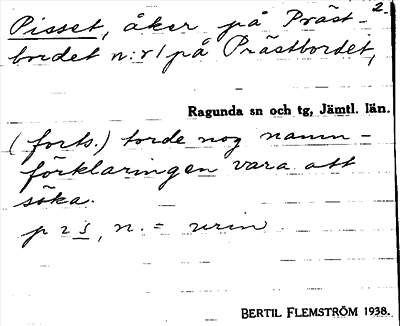 2.
Pisset, åker på Präst-
bordet n:r 1 på Prästbordet,
Ragunda sn och tg, Jämtl. län.
(forts.) torde nog namn-
förklaringen vara att
söka.
n. = urin
BERTIL FLEMSTRÖM 1938.